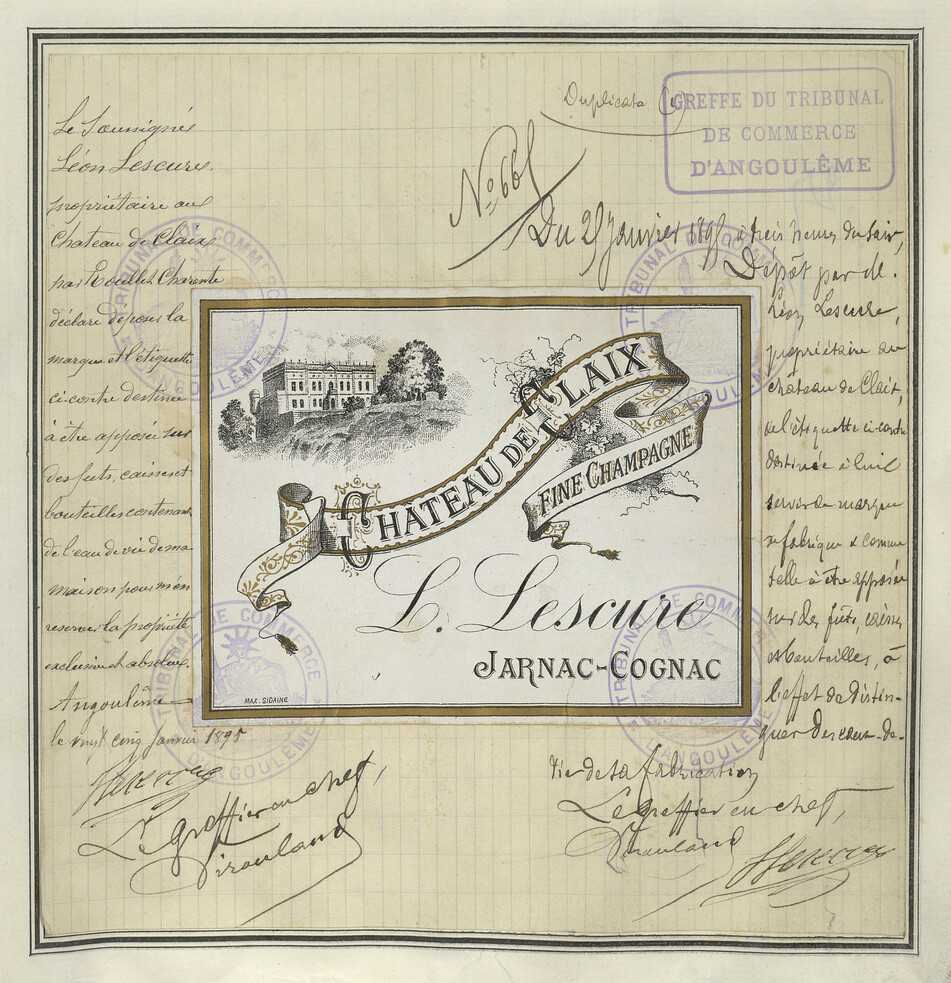 Duplicata
GREFFE DU TRIBUNAL
DE COMMERCE
D'ANGOULÊME
Le Soussigné
Léon Lescure
propriétaire au
Chateau de Claix
par Roullet Charente
déclare déposer la
marque et l'étiquette
ci-contre destinée
à être apposée sur
des futs, caisses et
bouteilles contenant
de l'eau de vie de ma
maison pour m'en
reserver la propriété
exclusive et absolue.
Angoulême
le vingt cinq Janvier 1895
Le Greffier en chef,
No 661
Du 25 Janvier 1895, à trois heures du soir,
Dépôt par M.
Léon Lescure,
propriétaire au
château de Claix,
de l'étiquette ci-contre
destinée à lui
servir de marque
de fabrique & comme
telle à être apposée
sur des fûts, caisses
et bouteilles, à
l'effet de distin-
guer des eaux-de-
vie de sa fabrication
Le Greffier en chef,
CHÂTEAU DE CLAIX
FINE CHAMPAGNE
L. Lescure
JARNAC-COGNAC
MAX. SIDAINE
TRIBUNAL DE COMMERCE
ANGOULÊME
TRIBUNAL DE COMMERCE
ANGOULÊME
TRIBUNAL DE COMMERCE
ANGOULÊME
TRIBUNAL DE COMMERCE
ANGOULÊME